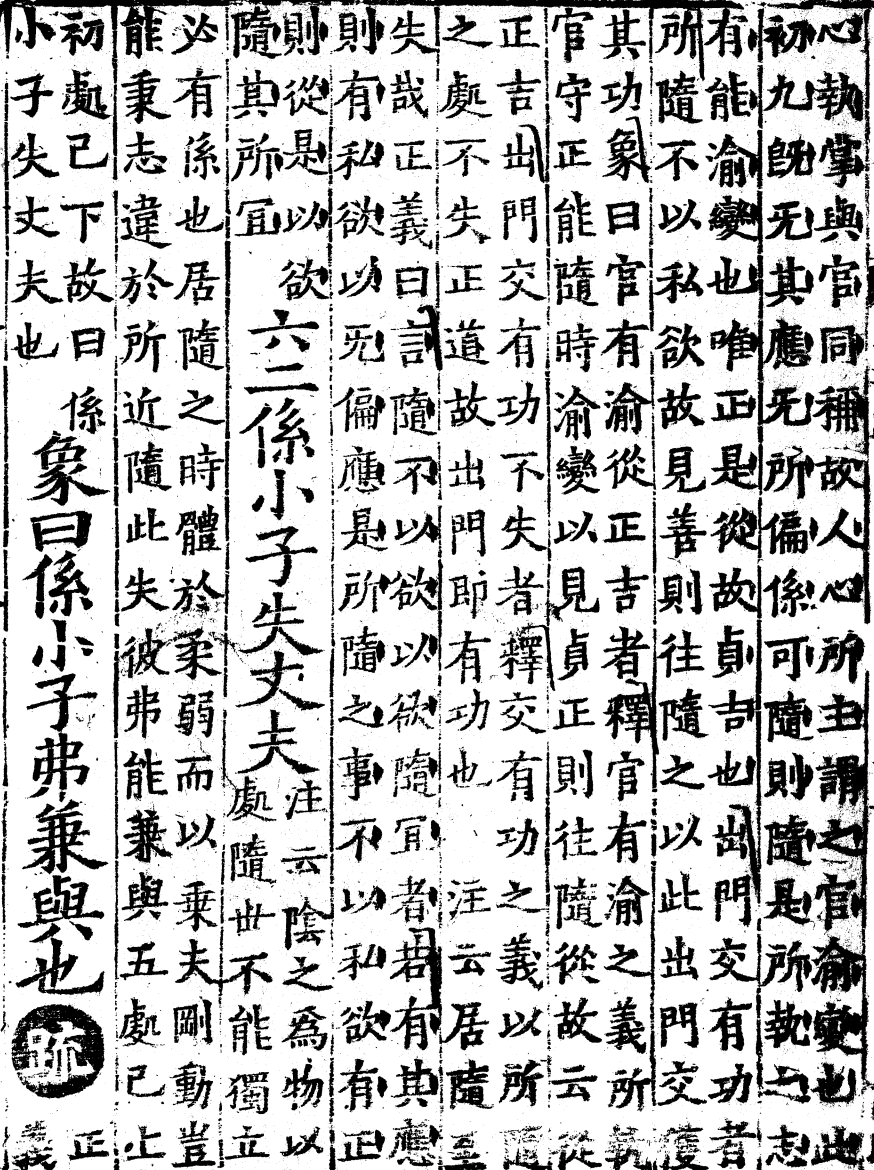 心執掌與官同稱故人心所主謂之官渝變也此
初九旣无其應无所偏係可隨則隨是所執之志
有能渝變也唯正是從故貞吉也出門交有功者
所隨不以私欲故見善則往隨之以此出門交獲
其功象曰官有渝從正吉者釋官有渝之義所執
官守正能隨時渝變以見貞正則往隨從故云從
正吉出門交有功不失者釋交有功之義以所隨
之處不失正道故出門即有功也 注云居隨至
失哉正義曰言隨不以欲以欲隨宜者若有其應
則有私欲以无偏應是所隨之事不以私欲有正
則從是以欲
隨其所宜
六二係小子失丈夫
注云陰之爲物以
處隨世不能獨立
必有係也居隨之時體於柔弱而以乗夫剛動豈
能秉志違於所近隨此失彼弗能兼與五處己上
初處己下故曰係
小子失丈夫也
象曰係小子弗兼與也
疏
正
義